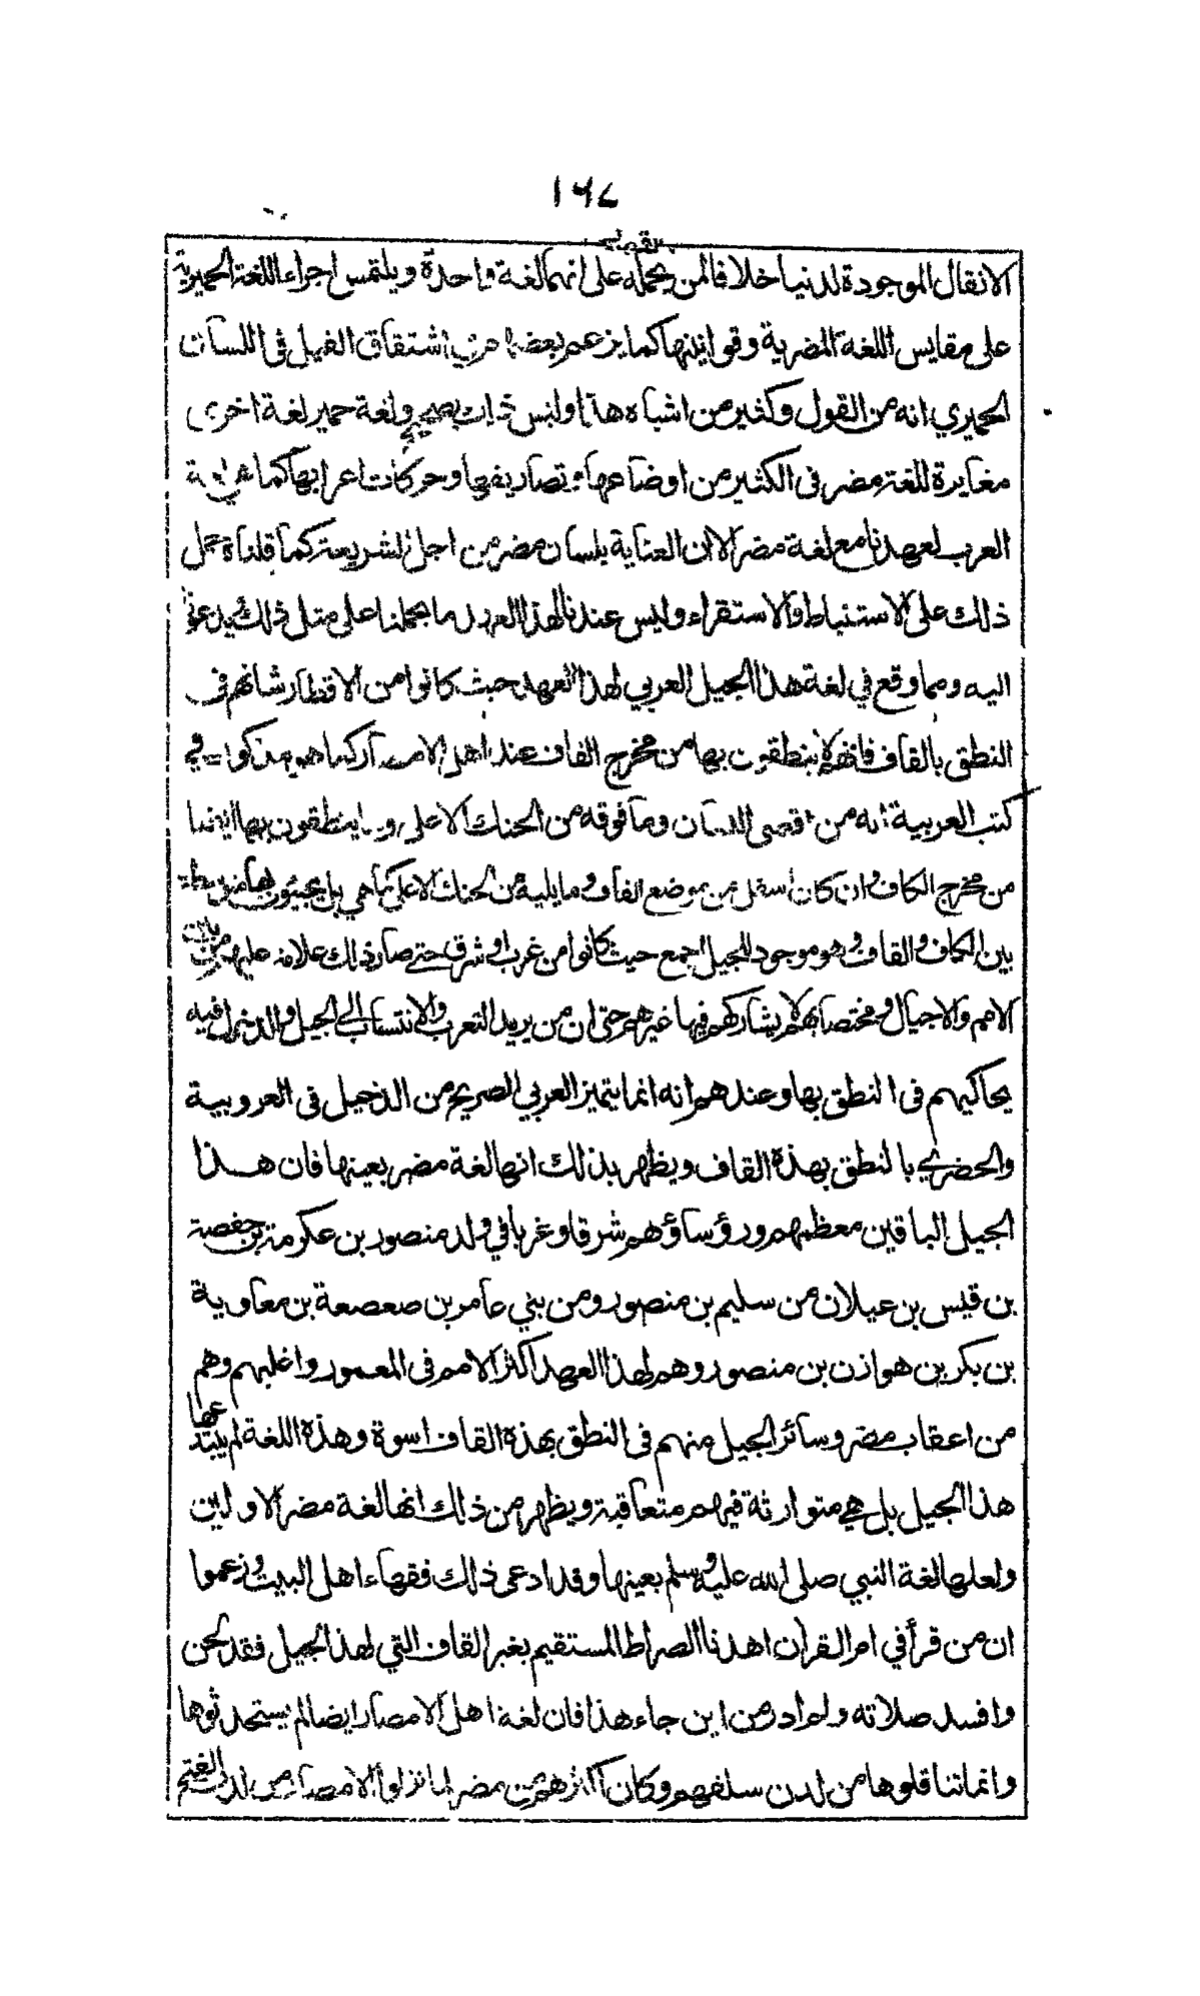 ١٦٧
الانقال الموجودة لدنيا خلافا لمن يحمله على انهما لغة واحدة ويلتمس اجراء اللغة الحميرية
على مقايس اللغة المضرية وقوانينها كما يزعم بعضهم في اشتقاق القيل فى اللسان
الحميري انه من القول وكثير من اشباه هذا وليس ذلك بصحيح ولغة حمير لغة اخرى
مغايرة للغة مضر فى الكثير من اوضاعها وتصاريفها وحركات اعرابها كما هي لغة
العرب لعهدنا مع لغة مضر الا ان العناية بلسان مضر من اجل الشريعة كما قلناه حمل
ذلك على الاستنباط والاستقراء وليس عندنا لهذا العهد ما يحملنا على مثل ذلك ويدعونا
اليه ومما وقع في لغة هذا الجيل العربي لهذا العهد حيث كانوا من الاقطار شانهم فى
النطق بالقاف فانهم لا ينطقون بها من مخرج القاف عند اهل الامصار كما هو مذكور في
كتب العربية انه من اقصى اللسان وما فوقه من الحنك الاعلى وما ينطقون بها ايضا
من مخرج الكاف وان كان اسفل من موضع القاف وما يليه من الحنك الاعلى كما هي بل يجيئون بها متوسطة
بين الكاف والقاف وهو موجود للجيل اجمع حيث كانوا من غرب او شرق حتى صار ذلك علامة عليهم من بين
الامم والاجيال ومختصا بهم لا يشاركهم فيها غيرهم حتى ان من يريد التعرب والانتساب الى الجيل والدخول فيه
يحاكيهم فى النطق بها وعندهم انه انما يتميز العربي الصريح من الدخيل فى العروبية
والحضري بالنطق بهذه القاف ويظهر بذلك انها لغة مضر بعينها فان هذا
الجيل الباقين معظمهم ورؤساؤهم شرقا وغربا في ولد منصور بن عكرمة بن حفصة
بن قيس بن عيلان من سليم بن منصور ومن بني عامر بن صعصعة بن معاوية
بن بكر بن هوازن بن منصور وهم لهذا العهد اكثر الامم فى المعمور واغلبهم وهم
من اعقاب مضر وسائر الجيل منهم فى النطق بهذه القاف اسوة وهذه اللغة لم يبتدعها
هذا الجيل بل هي متوارثة فيهم متعاقبة ويظهر من ذلك انها لغة مضر الاولين
ولعلها لغة النبي صلى الله عليه وسلم بعينها وقد ادعى ذلك فقهاء اهل البيت وزعموا
ان من قرأ في ام القران اهدنا الصراط المستقيم بغير القاف التي لهذا الجيل فقد لحن
وافسد صلاته ولم ادر من اين جاء هذا فان لغة اهل الامصار ايضا لم يستحدثوها
وانما تناقلوها من لدن سلفهم وكان اكثرهم من مضر لما نزلوا الامصار من لدن الفتح